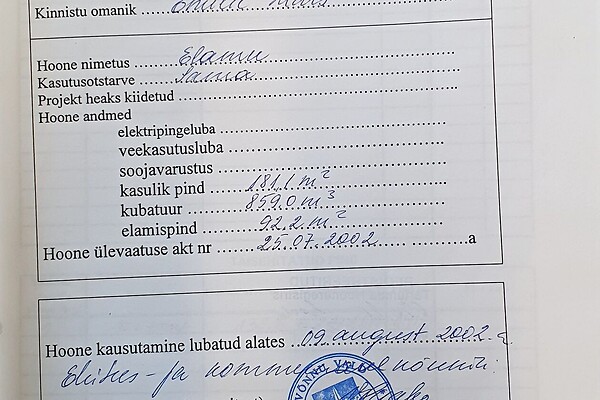 Kinnistu omanik
Hoone nimetus ..... Elamu
Kasutusotstarve ..... Sama
Projekt heaks kiidetud .....
Hoone andmed
elektripingeluba .....
veekasutusluba .....
soojavarustus .....
kasulik pind ..... 181,1 m²
kubatuur ..... 859,0 m³
elamispind ..... 92,2 m²
Hoone ülevaatuse akt nr ..... 25.07.2002 ..... a
Hoone kausutamine lubatud alates .. 09. august 2002. a
Ehitus- ja
VÕNNU VALD